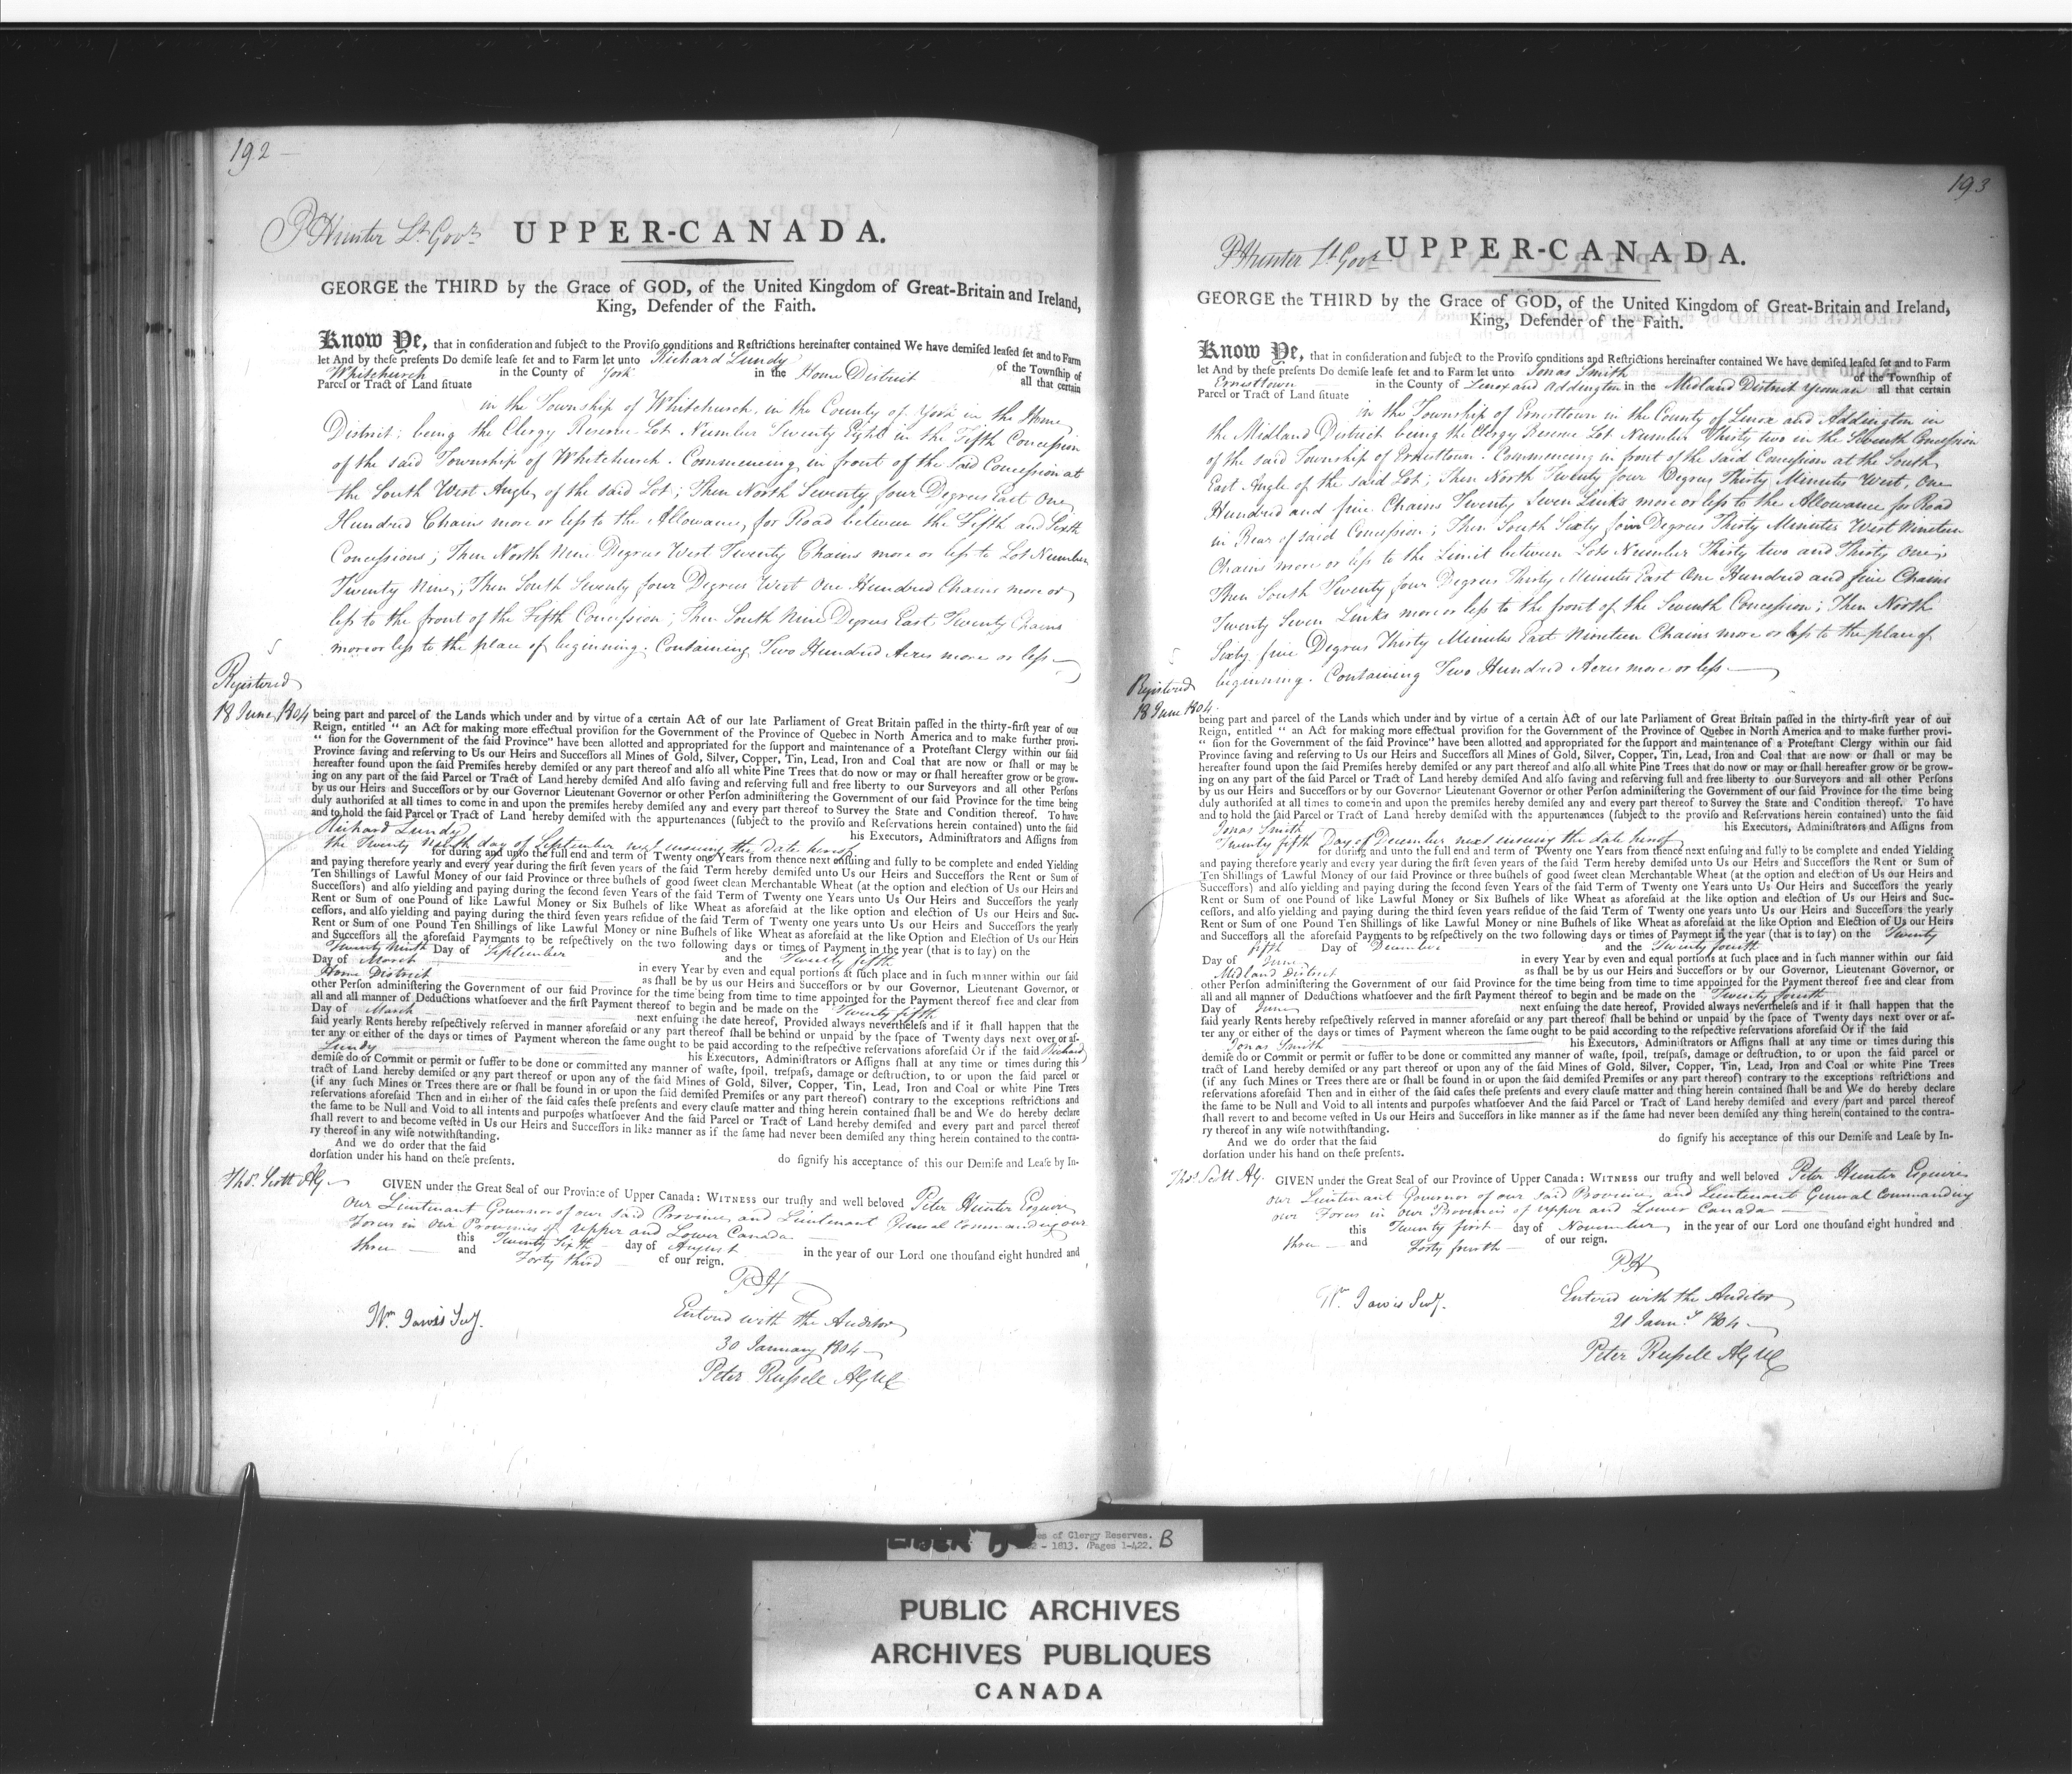 192
P Hunter Lt Govr UPPER-CANADA.
GEORGE the THIRD by the Grace of GOD, of the United Kingdom of Great-Britain and Ireland,
King, Defender of the Faith.
Know Ye, that in conſideration and subject to the Proviſo conditions and Reſtrictions hereinafter contained We have demiſed leaſed ſet and to Farm
let And by theſe preſents Do demiſe leaſe ſet and to Farm let unto Richard Lundy of the Township of
Whitchurch in the County of York in the Home District all that certain
Parcel or Tract of Land ſituate
in the Township of Whitchurch, in the County of York in the Home
District; being the Clergy Reserve Lot Number Twenty Eight in the Fifth Concession
of the said Township of Whitchurch. Commencing in front of the said Concession at
the South West Angle of the said Lot; Then North Seventy four Degrees East One
Hundred Chains more or less to the Allowance for Road between the Fifth and Sixth
Concessions; Then North Nine Degrees West Twenty Chains more or less to Lot Number
Twenty Nine; Then South Seventy four Degrees West One Hundred Chains more or
less to the front of the Fifth Concession; Then South Nine Degrees East Twenty Chains
more or less to the place of beginning. Containing Two Hundred Acres more or less
Registered
18 June 1804
being part and parcel of the Lands which under and by virtue of a certain Act of our late Parliament of Great Britain paſſed in the thirty-firſt year of our
Reign, entitled " an Act for making more effectual proviſion for the Government of the Province of Quebec in North America and to make further provi-
" ſion for the Government of the ſaid Province" have been allotted and appropriated for the ſupport and maintenance of a Proteſtant Clergy within our ſaid
Province ſaving and reſerving to Us our Heirs and Succeſſors all Mines of Gold, Silver, Copper, Tin, Lead, Iron and Coal that are now or ſhall or may be
hereafter found upon the ſaid Premiſes hereby demiſed or any part thereof and alſo all white Pine Trees that do now or may or ſhall hereafter grow or be grow-
ing on any part of the ſaid Parcel or Tract of Land hereby demiſed And alſo ſaving and reſerving full and free liberty to our Surveyors and all other Perſons
by us our Heirs and Succeſſors or by our Governor Lieutenant Governor or other Perſon adminiſtering the Government of our ſaid Province for the time being
duly authoriſed at all times to come in and upon the premiſes hereby demiſed any and every part thereof to Survey the State and Condition thereof. To have
and to hold the ſaid Parcel or Tract of Land hereby demiſed with the appurtenances (ſubject to the proviſo and Reſervations herein contained) unto the ſaid
Richard Lundy his Executors, Adminiſtrators and Aſſigns from
the Twenty Ninth day of September next ensuing the date hereof
for during and unto the full end and term of Twenty one Years from thence next enſuing and fully to be complete and ended Yielding
and paying therefore yearly and every year during the firſt ſeven years of the ſaid Term hereby demiſed unto Us our Heirs and Succeſſors the Rent or Sum of
Ten Shillings of Lawful Money of our ſaid Province or three buſhels of good ſweet clean Merchantable Wheat (at the option and election of Us our Heirs and
Succeſſors) and alſo yielding and paying during the ſecond ſeven Years of the ſaid Term of Twenty one Years unto Us Our Heirs and Succeſſors the yearly
Rent or Sum of one Pound of like Lawful Money or Six Buſhels of like Wheat as aforeſaid at the like option and election of Us our Heirs and Suc-
ceſſors, and alſo yielding and paying during the third ſeven years reſidue of the ſaid Term of Twenty one years unto Us our Heirs and Succeſſors the yearly
Rent or Sum of one Pound Ten Shillings of like Lawful Money or nine Buſhels of like Wheat as aforeſaid at the like Option and Election of Us our Heirs
and Succeſſors all the aforeſaid Payments to be reſpectively on the two following days or times of Payment in the year (that is to ſay) on the
Twenty Ninth Day of September and the Twenty fifth
Day of March in every Year by even and equal portions at ſuch place and in ſuch manner within our ſaid
Home District as ſhall be by us our Heirs and Succeſſors or by our Governor, Lieutenant Governor, or
other Perſon adminiſtering the Government of our ſaid Province for the time being from time to time appointed for the Payment thereof free and clear from
all and all manner of Deductions whatſoever and the firſt Payment thereof to begin and be made on the Twenty fifth
Day of March next enſuing the date hereof, Provided always nevertheleſs and if it ſhall happen that the
ſaid yearly Rents hereby reſpectively reſerved in manner aforeſaid or any part thereof ſhall be behind or unpaid by the ſpace of Twenty days next over or af-
ter any or either of the days or times of Payment whereon the ſame ought to be paid according to the reſpective reſervations aforeſaid Or if the ſaid Richard
Lundy his Executors, Adminiſtrators or Aſſigns ſhall at any time or times during this
demiſe do or Commit or permit or ſuffer to be done or committed any manner of waſte, ſpoil, treſpaſs, damage or deſtruction, to or upon the ſaid parcel or
tract of Land hereby demiſed or any part thereof or upon any of the ſaid Mines of Gold, Silver, Copper, Tin, Lead, Iron and Coal or white Pine Trees
(if any ſuch Mines or Trees there are or ſhall be found in or upon the ſaid demiſed Premiſes or any part thereof) contrary to the exceptions reſtrictions and
reſervations aforeſaid Then and in either of the ſaid caſes theſe preſents and every clauſe matter and thing herein contained ſhall be and We do hereby declare
the ſame to be Null and Void to all intents and purpoſes whatſoever And the ſaid Parcel or Tract of Land hereby demiſed and every part and parcel thereof
ſhall revert to and become veſted in Us our Heirs and Succeſſors in like manner as if the ſame had never been demiſed any thing herein contained to the contra-
ry thereof in any wiſe notwithſtanding.
And we do order that the ſaid do ſignify his acceptance of this our Demiſe and Leaſe by In-
dorſation under his hand on theſe preſents.
Thos. Scott AG
GIVEN under the Great Seal of our Province of Upper Canada: WITNESS our truſty and well beloved Peter Hunter Esquire
Our Lieutenant Governor of our said Province, and Lieutenant General Commanding our
Forces in Our Provinces of Upper and Lower Canada
this Twenty Sixth day of August in the year of our Lord one thouſand eight hundred and
three and Forty third of our reign.
PH
Wm. Jarvis Secy.
Entered with the Auditor
30 January 1804
Peter Russell AGUC
193
P Hunter Lt Govr UPPER-CANADA.
GEORGE the THIRD by the Grace of GOD, of the United Kingdom of Great-Britain and Ireland,
King, Defender of the Faith.
Know Ye, that in conſideration and ſubject to the Proviſo conditions and Reſtrictions hereinafter contained We have demiſed leaſed ſet and to Farm
let And by theſe preſents Do demiſe leaſe ſet and to Farm let unto Jonas Smith of the Township of
Ernesttown in the County of Lenox and Addington in the Midland District Yeoman all that certain
Parcel or Tract of Land ſituate
in the Township of Ernesttown in the County of Lenox and Addington in
the Midland District being the Clergy Reserve Lot Number Thirty two in the Seventh Concession
of the said Township of Ernesttown. Commencing in front of the said Concession at the South
East Angle of the said Lot; Then North Twenty four Degrees Thirty Minutes West, One
Hundred and five Chains Twenty Seven Links more or less to the Allowance for Road
in Rear of said Concession; Then South Sixty five Degrees Thirty Minutes West Nineteen
Chains more or less to the Limit between Lots Number Thirty two and Thirty One;
Then South Twenty four Degrees Thirty Minutes East One Hundred and five Chains
Twenty Seven Links more or less to the front of the Seventh Concession; Then North
Sixty five Degrees Thirty Minutes East Nineteen Chains more or less to the place of
beginning. Containing Two Hundred Acres more or less
Registered
18 June 1804
being part and parcel of the Lands which under and by virtue of a certain Act of our late Parliament of Great Britain paſſed in the thirty-firſt year of our
Reign, entitled " an Act for making more effectual proviſion for the Government of the Province of Quebec in North America and to make further provi-
" ſion for the Government of the ſaid Province" have been allotted and appropriated for the ſupport and maintenance of a Proteſtant Clergy within our ſaid
Province ſaving and reſerving to Us our Heirs and Succeſſors all Mines of Gold, Silver, Copper, Tin, Lead, Iron and Coal that are now or ſhall or may be
hereafter found upon the ſaid Premiſes hereby demiſed or any part thereof and alſo all white Pine Trees that do now or may or ſhall hereafter grow or be grow-
ing on any part of the ſaid Parcel or Tract of Land hereby demiſed And alſo ſaving and reſerving full and free liberty to our Surveyors and all other Perſons
by us our Heirs and Succeſſors or by our Governor Lieutenant Governor or other Perſon adminiſtering the Government of our ſaid Province for the time being
duly authoriſed at all times to come in and upon the premiſes hereby demiſed any and every part thereof to Survey the State and Condition thereof. To have
and to hold the ſaid Parcel or Tract of Land hereby demiſed with the appurtenances (ſubject to the proviſo and Reſervations herein contained) unto the ſaid
Jonas Smith his Executors, Adminiſtrators and Aſſigns from
Twenty fifth Day of December next ensuing the date hereof
for during and unto the full end and term of Twenty one Years from thence next enſuing and fully to be complete and ended Yielding
and paying therefore yearly and every year during the firſt ſeven years of the ſaid Term hereby demiſed unto Us our Heirs and Succeſſors the Rent or Sum of
Ten Shillings of Lawful Money of our ſaid Province or three buſhels of good ſweet clean Merchantable Wheat (at the option and election of Us our Heirs and
Succeſſors) and alſo yielding and paying during the ſecond ſeven Years of the ſaid Term of Twenty one Years unto Us Our Heirs and Succeſſors the yearly
Rent or Sum of one Pound of like Lawful Money or Six Buſhels of like Wheat as aforeſaid at the like option and election of Us our Heirs and Suc-
ceſſors, and alſo yielding and paying during the third ſeven years reſidue of the ſaid Term of Twenty one years unto Us our Heirs and Succeſſors the yearly
Rent or Sum of one Pound Ten Shillings of like Lawful Money or nine Buſhels of like Wheat as aforeſaid at the like Option and Election of Us our Heirs
and Succeſſors all the aforeſaid Payments to be reſpectively on the two following days or times of Payment in the year (that is to ſay) on the Twenty
fifth Day of December and the Twenty fourth
Day of June in every Year by even and equal portions at ſuch place and in ſuch manner within our ſaid
Midland District as ſhall be by us our Heirs and Succeſſors or by our Governor, Lieutenant Governor, or
other Perſon adminiſtering the Government of our ſaid Province for the time being from time to time appointed for the Payment thereof free and clear from
all and all manner of Deductions whatſoever and the firſt Payment thereof to begin and be made on the Twenty fourth
Day of June next enſuing the date hereof, Provided always nevertheleſs and if it ſhall happen that the
ſaid yearly Rents hereby reſpectively reſerved in manner aforeſaid or any part thereof ſhall be behind or unpaid by the ſpace of Twenty days next over or af-
ter any or either of the days or times of Payment whereon the ſame ought to be paid according to the reſpective reſervations aforeſaid Or if the ſaid
Jonas Smith his Executors, Adminiſtrators or Aſſigns ſhall at any time or times during this
demiſe do or Commit or permit or ſuffer to be done or committed any manner of waſte, ſpoil, treſpaſs, damage or deſtruction, to or upon the ſaid parcel or
tract of Land hereby demiſed or any part thereof or upon any of the ſaid Mines of Gold, Silver, Copper, Tin, Lead, Iron and Coal or white Pine Trees
(if any ſuch Mines or Trees there are or ſhall be found in or upon the ſaid demiſed Premiſes or any part thereof) contrary to the exceptions reſtrictions and
reſervations aforeſaid Then and in either of the ſaid caſes theſe preſents and every clauſe matter and thing herein contained ſhall be and We do hereby declare
the ſame to be Null and Void to all intents and purpoſes whatſoever And the ſaid Parcel or Tract of Land hereby demiſed and every part and parcel thereof
ſhall revert to and become veſted in Us our Heirs and Succeſſors in like manner as if the ſame had never been demiſed any thing herein contained to the contra-
ry thereof in any wiſe notwithſtanding.
And we do order that the ſaid do ſignify his acceptance of this our Demiſe and Leaſe by In-
dorſation under his hand on theſe preſents.
Thos. Scott AG.
GIVEN under the Great Seal of our Province of Upper Canada: WITNESS our truſty and well beloved Peter Hunter Esquire
our Lieutenant Governor of our said Province, and Lieutenant General Commanding
our Forces in Our Provinces of Upper and Lower Canada
this Twenty first day of November in the year of our Lord one thouſand eight hundred and
three and Forty fourth of our reign.
PH
Wm. Jarvis Secy.
Entered with the Auditor
21 Jany. 1804
Peter Russell AGUC
es of Clergy Reserves.
2 - 1813. (Pages 1-422. B
PUBLIC ARCHIVES
ARCHIVES PUBLIQUES
CANADA